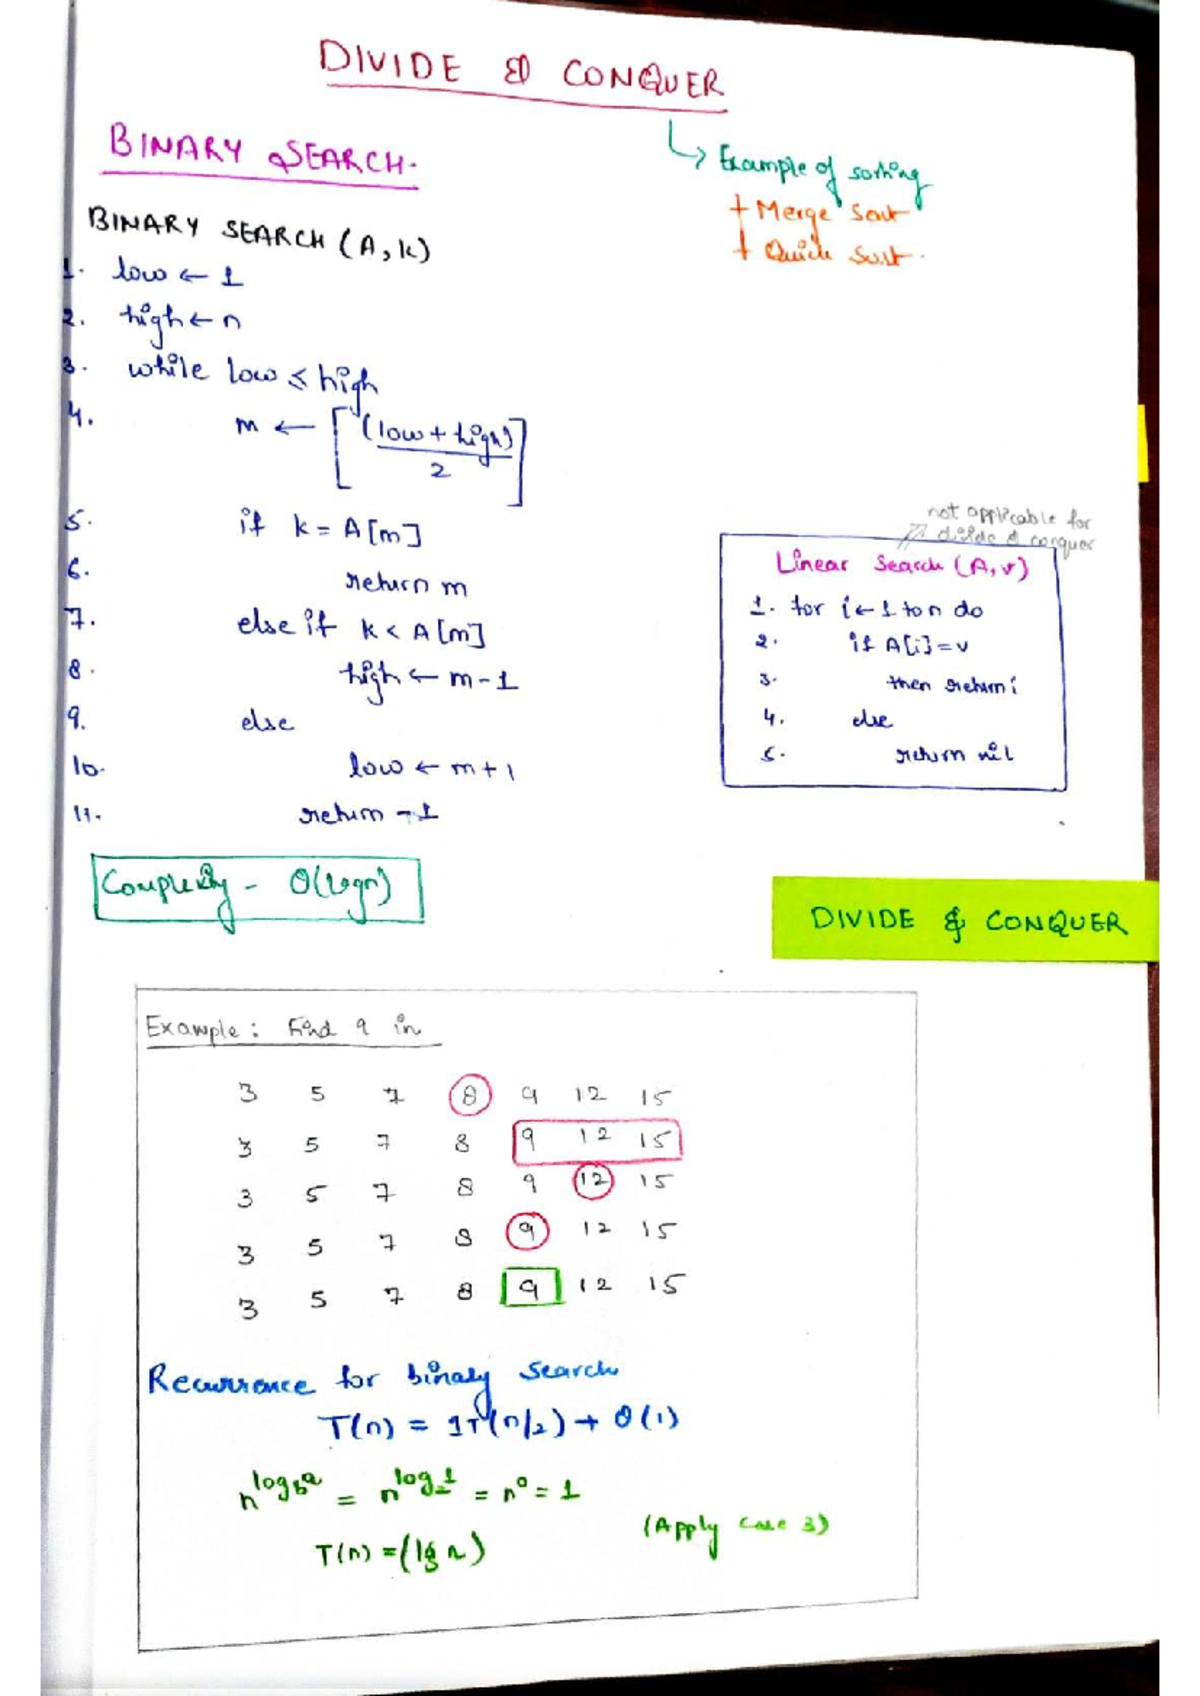 DIVIDE & CONQUER
→ Example of sorting
+ Merge Sort
+ Quick Sort.
BINARY SEARCH.
BINARY SEARCH (A, k)
1. low ← 1
2. high ← n
3. while low ≤ high
4. m ← [(low + high)/2]
5. if k = A[m]
6. return m
7. else if k < A[m]
8. high ← m-1
9. else
10. low ← m+1
11. return -1
not applicable for
divide & conquer
Linear Search (A, v)
1. for i ← 1 to n do
2. if A[i] = v
3. then return i
4. else
5. return nil
Complexity - θ(logn)
DIVIDE & CONQUER
Example: Find 9 in
3 5 7 8 9 12 15
3 5 7 8 9 12 15
3 5 7 8 9 12 15
3 5 7 8 9 12 15
3 5 7 8 9 12 15
Recurrence for binary search
T(n) = 1T(n/2) + θ(1)
n^log_b a = n^log_2 1 = n^0 = 1
(Apply case 3)
T(n) = (lg n)